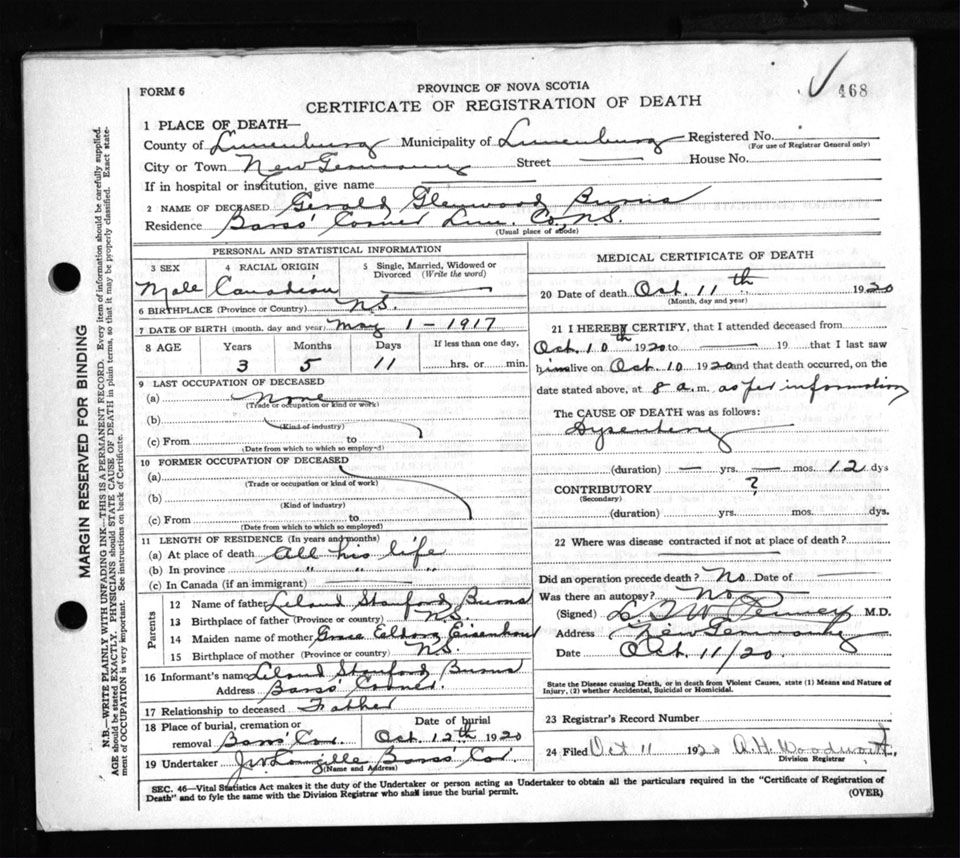 468
FORM 6
PROVINCE OF NOVA SCOTIA
CERTIFICATE OF REGISTRATION OF DEATH
MARGIN RESERVED FOR BINDING
N.B.—WRITE PLAINLY WITH UNFADING INK—THIS IS A PERMANENT RECORD. Every item of information should be carefully supplied.
AGE should be stated EXACTLY. PHYSICIANS should STATE CAUSE OF DEATH in plain terms, so that it may be properly classified. Exact state-
ment of OCCUPATION is very important. See instructions on back of Certificate.
1 PLACE OF DEATH—
County of Lunenburg Municipality of Lunenburg Registered No.
(For use of Registrar General only)
City or Town New Germany Street — House No.
If in hospital or institution, give name —
2 NAME OF DECEASED Gerald Glenwood Burns
Residence Barss' Corner Lun. Co., N.S.
(Usual place of abode)
PERSONAL AND STATISTICAL INFORMATION
3 SEX 4 RACIAL ORIGIN 5 Single, Married, Widowed or Divorced (Write the word)
Male Canadian —
6 BIRTHPLACE (Province or Country) N.S.
7 DATE OF BIRTH (month, day and year) May 1 - 1917
8 AGE Years Months Days If less than one day,
3 5 11 hrs. or min.
9 LAST OCCUPATION OF DECEASED
(a) None
(Trade or occupation or kind or work)
(b)
(Kind of industry)
(c) From to
(Date from which to which so employed)
10 FORMER OCCUPATION OF DECEASED
(a)
(Trade or occupation or kind of work)
(b)
(Kind of industry)
(c) From to
(Date from which to which so employed)
11 LENGTH OF RESIDENCE (In years and months)
(a) At place of death All his life
(b) In province " " "
(c) In Canada (if an immigrant) —
Parents
12 Name of father Leland Stanford Burns
13 Birthplace of father (Province or country) N.S.
14 Maiden name of mother Grace Eisenhaur
15 Birthplace of mother (Province or country) N.S.
16 Informant's name Leland Stanford Burns
Address Barss' Corner.
17 Relationship to deceased Father
18 Place of burial, cremation or removal Barss' Cor. Date of burial Oct. 12th 1920
19 Undertaker J W Langille Barss' Cor.
(Name and Address)
MEDICAL CERTIFICATE OF DEATH
20 Date of death Oct. 11th 1920
(Month, day and year)
21 I HEREBY CERTIFY, that I attended deceased from
Oct. 10th 1920 to — 19 that I last saw
him alive on Oct. 10 1920 and that death occurred, on the
date stated above, at 8 a.m. as per information
The CAUSE OF DEATH was as follows:
Dysentery
(duration) — yrs. — mos. 12 dys
CONTRIBUTORY ?
(Secondary)
(duration) yrs. mos. dys.
22 Where was disease contracted if not at place of death?
Did an operation precede death? No Date of —
Was there an autopsy? No
(Signed) Penney M.D.
Address New Germany
Date Oct. 11/20.
State the Disease causing Death, or in death from Violent Causes, state (1) Means and Nature of
Injury, (2) whether Accidental, Suicidal or Homicidal.
23 Registrar's Record Number
24 Filed Oct 11 1920 A.H. Woodworth,
Division Registrar
SEC. 46—Vital Statistics Act makes it the duty of the Undertaker or person acting as Undertaker to obtain all the particulars required in the "Certificate of Registration of
Death" and to fyle the same with the Division Registrar who shall issue the burial permit. (OVER)